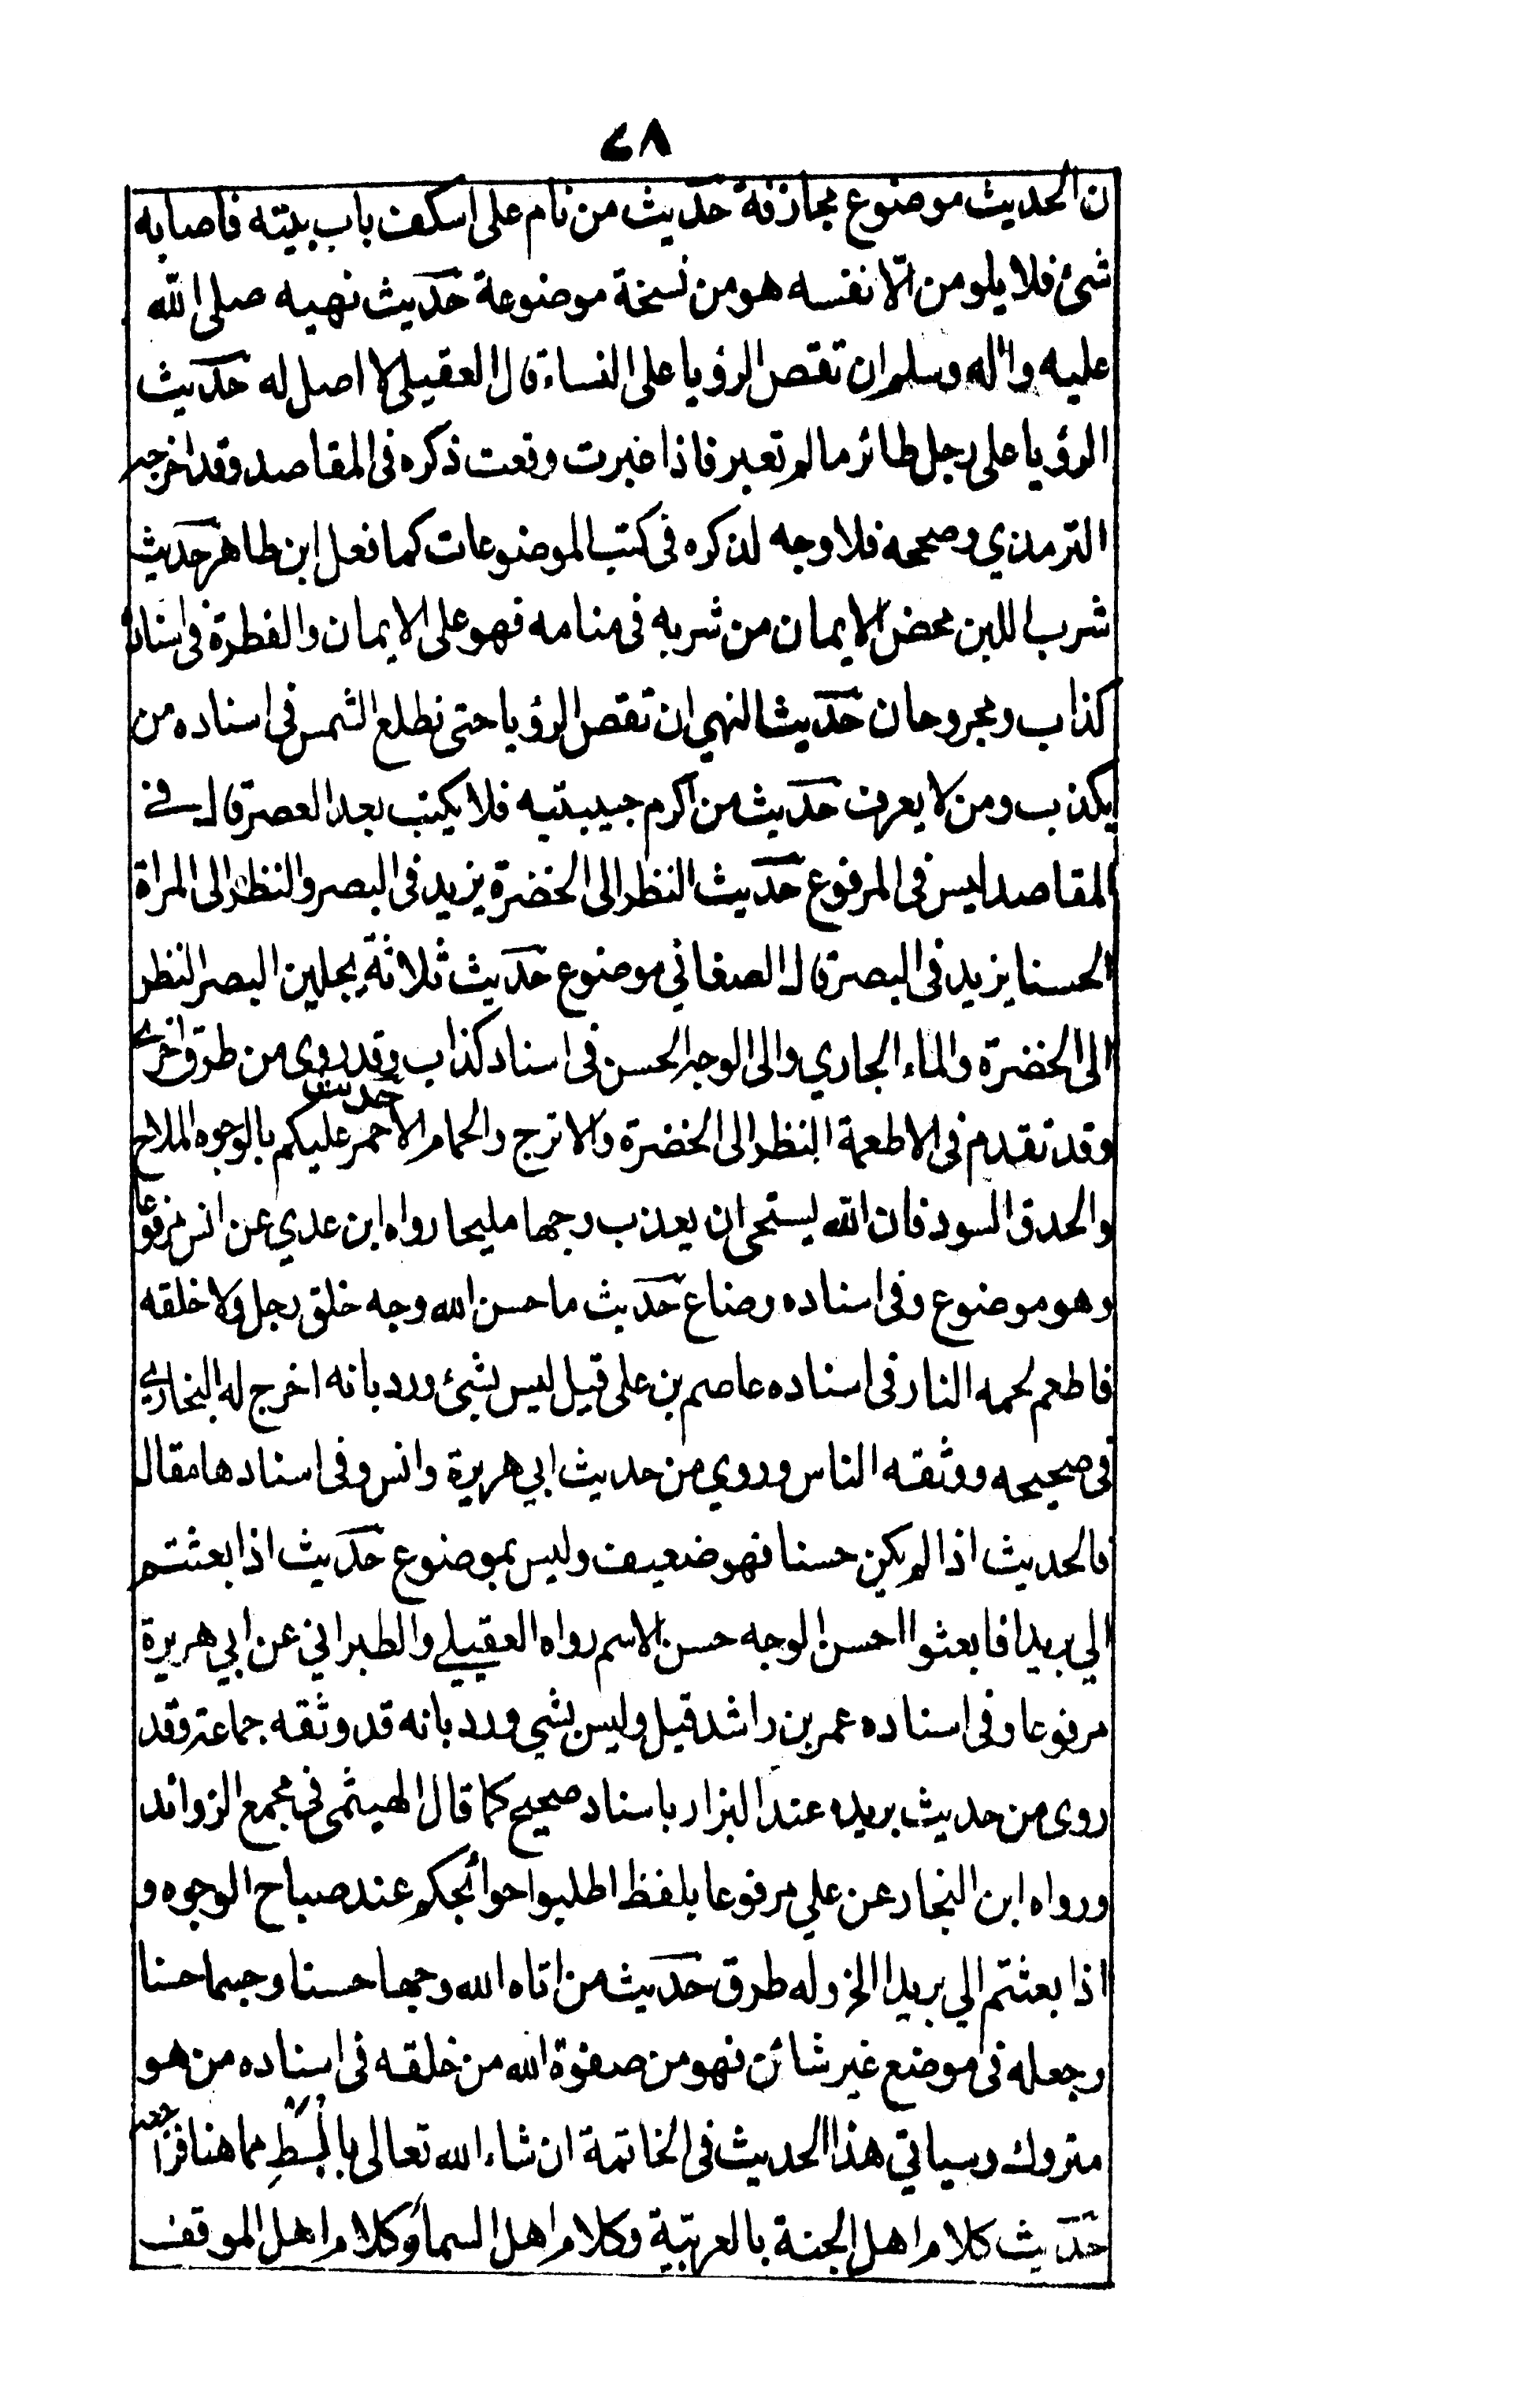 ٧٨
ن الحديث موضوع مجازفة حديث من نام على اسكف باب بيته فاصابه
شئ فلا يلومن الا نفسه هو من نسخة موضوعة حديث نهيه صلى الله
عليه واله وسلم ان تقص الرؤيا على النساء قال العقيلي لا اصل له حديث
الرؤيا على رجل طائر ما لم تعبر فاذا عبرت وقعت ذكره فى المقاصد وقد اخرجه
الترمذي وصححه فلا وجه لذكره فى كتب الموضوعات كما فعل ابن طاهر حديث
شرب اللبن محض الايمان من شربه فى منامه فهو على الايمان والفطرة فى اسناده
كذاب ومجروحان حديث النهي ان تقص الرؤيا حتى تطلع الشمس فى اسناده من
يكذب ومن لا يعرف حديث من اكرم حبيبتيه فلا يكتب بعد العصر قال في
المقاصد ليس فى المرفوع حديث النظر الى الخضرة يزيد فى البصر والنظر الى المراة
الحسنا يزيد فى البصر قال الصغاني موضوع حديث ثلاثة يجلين البصر النظر
الى الخضرة والماء الجاري والى الوجه الحسن فى اسناد كذاب وقد روى من طرق اخرى
وقد تقدم فى الاطعمة النظر الى الخضرة والاترج والحمام الاحمر حديث عليكم بالوجوه الملاح
والحدق السود فان الله ليستحى ان يعذب وجها مليحا رواه ابن عدي عن انس مرفوعا
وهو موضوع وفى اسناده وضاع حديث ما حسن الله وجه خلق رجل ولا خلقه
فاطعم لحمه النار فى اسناده عاصم بن على قيل ليس بشئ ورد بانه اخرج له البخاري
فى صحيحه ووثقه الناس وروي من حديث ابي هريرة وانس وفى اسنادها مقال
فالحديث اذا لم يكن حسنا فهو ضعيف وليس بموضوع حديث اذا بعثتم
الي بريدا فابعثوا احسن الوجه حسن الاسم رواه العقيلي والطبراني عن ابي هريرة
مرفوعا وفى اسناده عمر بن راشد قيل وليس بشي ورد بانه قد وثقه جماعة وقد
روى من حديث بريده عند البزار باسناد صحيح كما قال الهيثمى فى مجمع الزوائد
ورواه ابن النجار عن علي مرفوعا بلفظ اطلبوا حوائجكم عند صباح الوجوه و
اذا بعثتم الي بريدا الخ وله طرق حديث من اتاه الله وجها حسنا وجسما حسنا
وجعله فى موضع غير شائن فهو من صفوة الله من خلقه فى اسناده من هو
متروك وسياتي هذا الحديث فى الخاتمة ان شاء الله تعالى بابسط مما هنا
حديث كلام اهل الجنة بالعربية وكلام اهل السما وكلام اهل الموقف